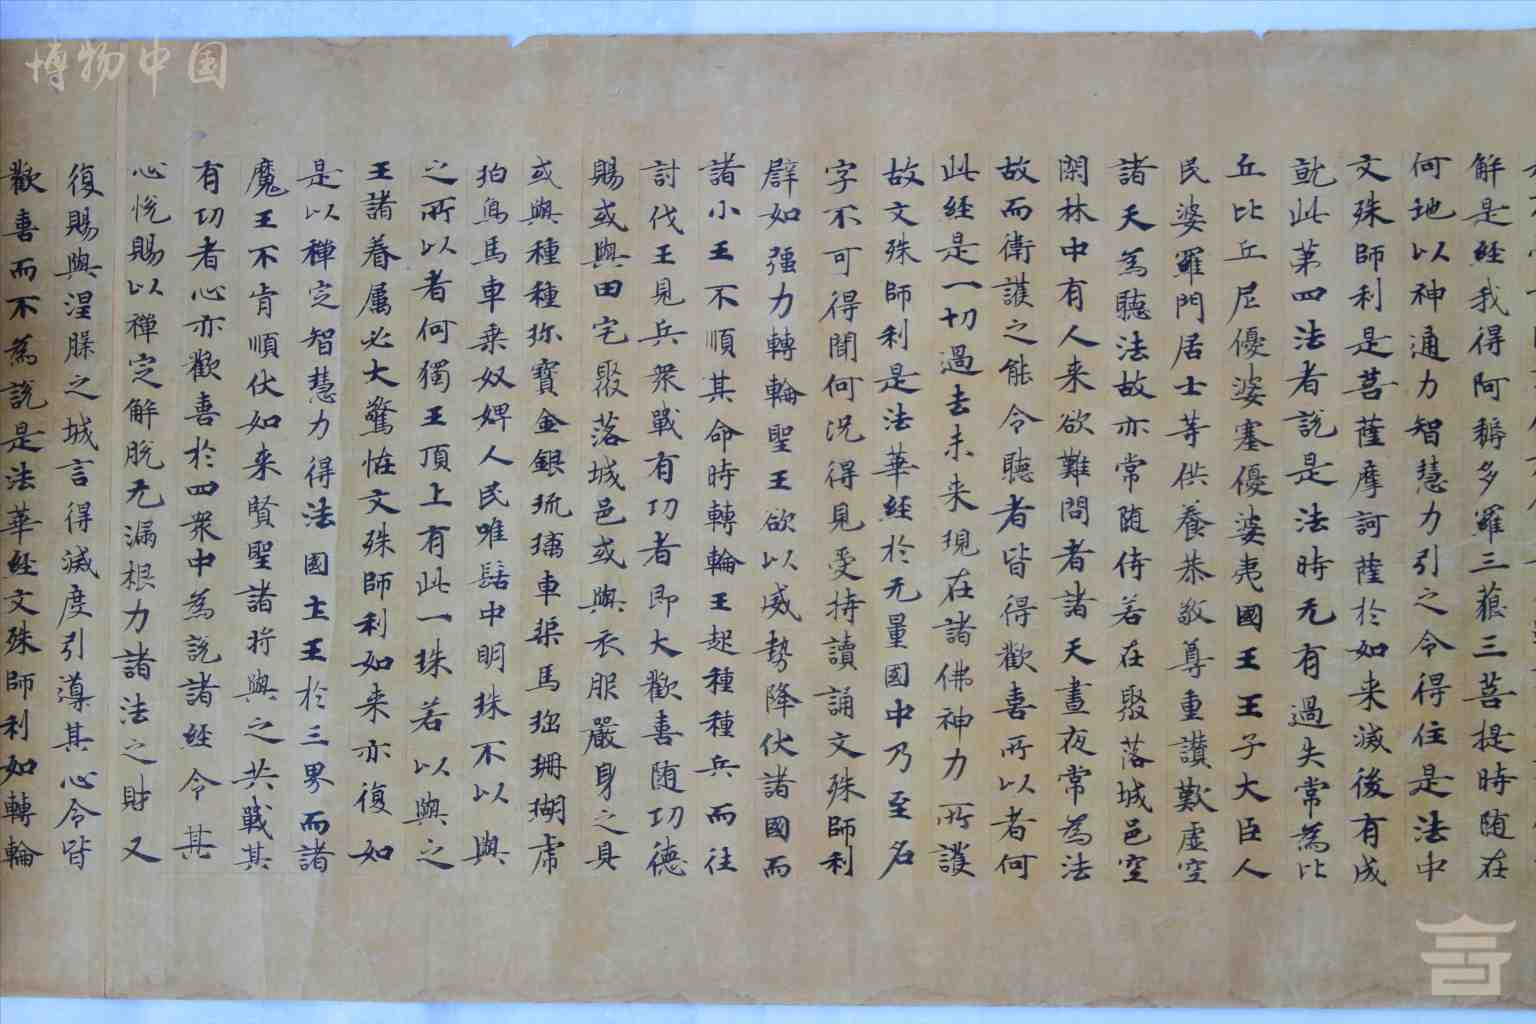 博物中国
解是経我得阿耨多羅三藐三菩提時随在
何地以神通力智慧力引之令得住是法中
文殊師利是菩薩摩訶薩於如来滅後有成
就此第四法者說是法時无有過失常為比
丘比丘尼優婆塞優婆夷國王王子大臣人
民婆羅門居士等供養恭敬尊重讃歎虚空
諸天為聽法故亦常随侍若在聚落城邑空
閑林中有人来欲難問者諸天晝夜常為法
故而衛護之能令聽者皆得歡喜所以者何
此経是一切過去未来現在諸佛神力所護
故文殊師利是法華経於无量國中乃至名
字不可得聞何況得見受持讀誦文殊師利
辟如强力轉輪聖王欲以威勢降伏諸國而
諸小王不順其命時轉輪王起種種兵而往
討伐王見兵衆戰有功者即大歡喜随功德
賜或與田宅聚落城邑或與衣服嚴身之具
或與種種弥寶金銀琉璃車𤦲馬瑙珊瑚虎
珀烏馬車乗奴婢人民唯髻中明珠不以與
之所以者何獨王頂上有此一珠若以與之
王諸眷屬必大驚恠文殊師利如来亦復如
是以禪定智慧力得法國土王於三界而諸
魔王不肯順伏如来賢聖諸將與之共戰其
有功者心亦歡喜於四衆中為說諸経令其
心悅賜以禪定解脫无漏根力諸法之財又
復賜與涅槃之城言得滅度引導其心令皆
歡喜而不為說是法華経文殊師利如轉輪